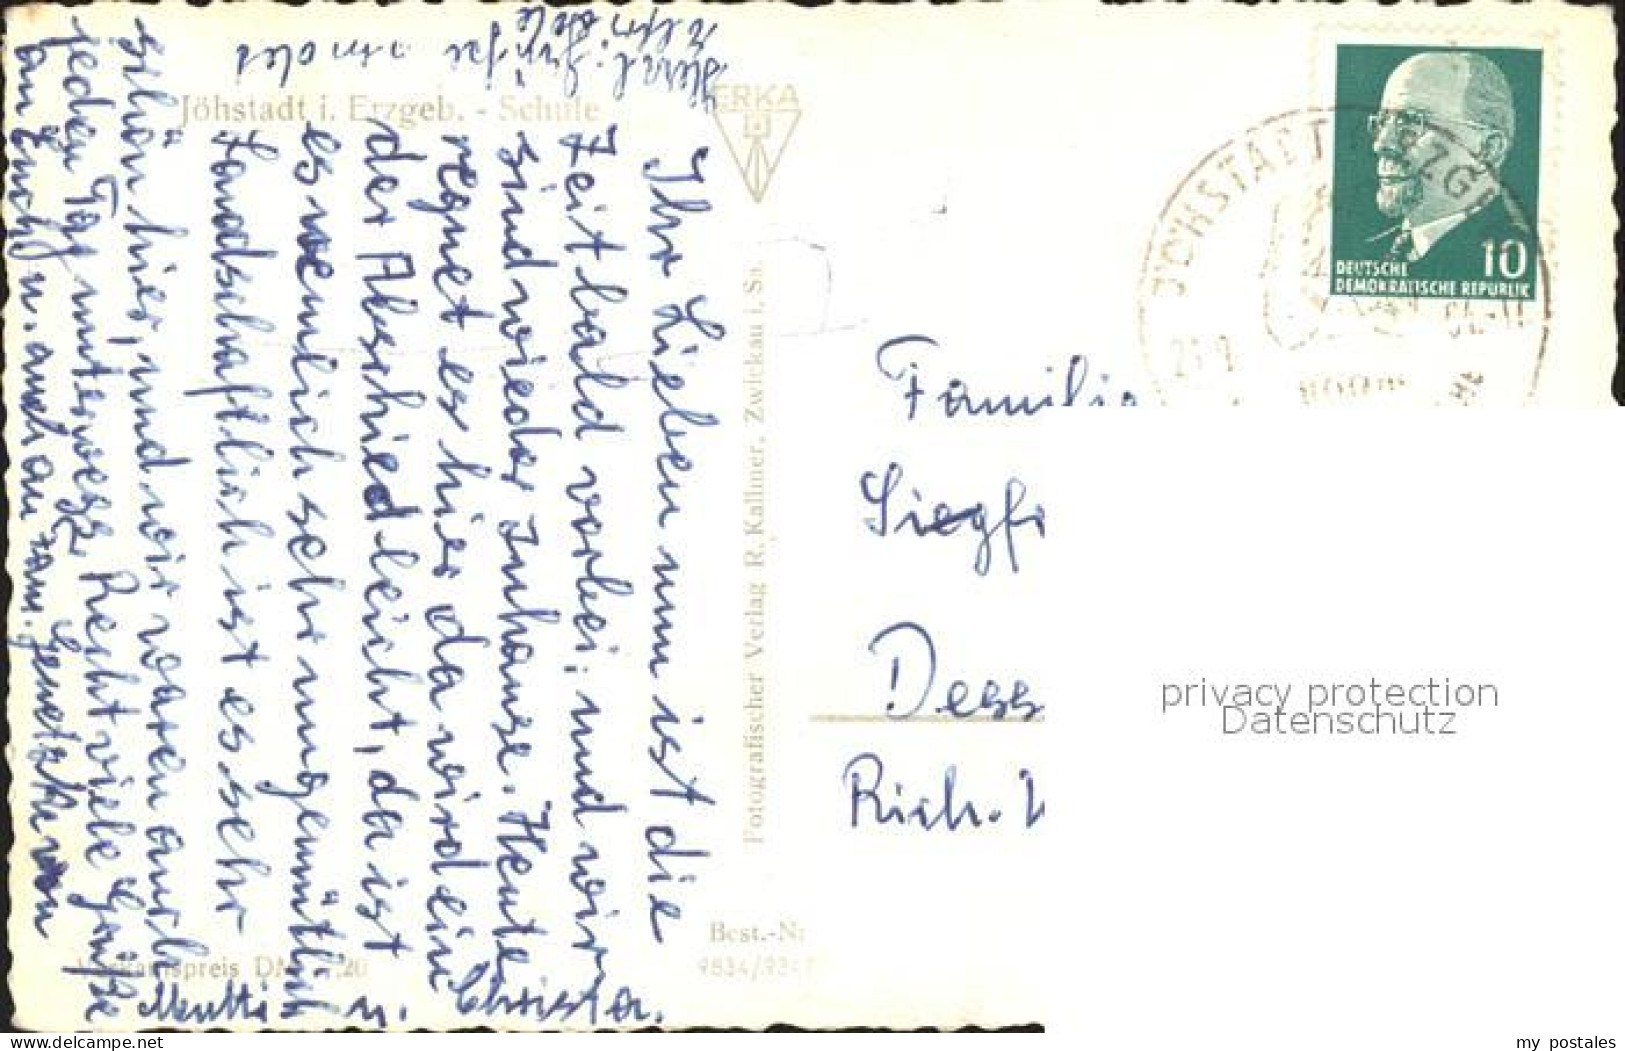 Jöhstadt i. Erzgeb. - Schule
ERKA
Ihr Lieben nun ist die
Zeit bald vorbei, und wir
sind wieder zuhause. Heute
regnet es hier da wird ein
der Abschied leicht, da ist
es nemlich sehr ungemütlich
Landschaftlich ist es sehr
schön hier, und wir waren auch
jeden Tag unterwegs. Recht viele Grüße
an Euch u. auch an Fam. von
Mutti u. Christa.
Herzl. Grüße
Fotografischer Verlag R. Kallmer, Zwickau i. Sa.
Verkaufspreis DM 0,20
Best.-Nr
9834/
JÖHSTADT ERZGEB
10
DEUTSCHE
DEMOKRATISCHE REPUBLIK
Familie
Siegfr
Dess
Rich.
privacy protection
Datenschutz
delcampe.net
my_postales